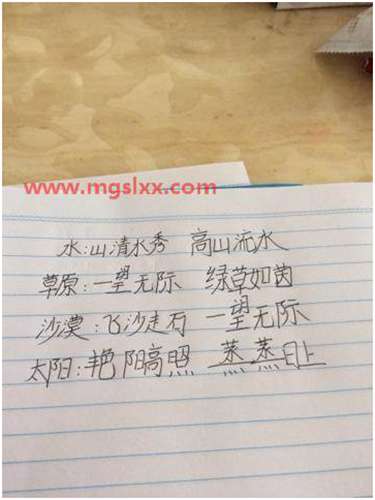 www.mgslxx.com
水:山清水秀 高山流水
草原:一望无际 绿草如茵
沙漠:飞沙走石 一望无际
太阳:艳阳高照 蒸蒸日上